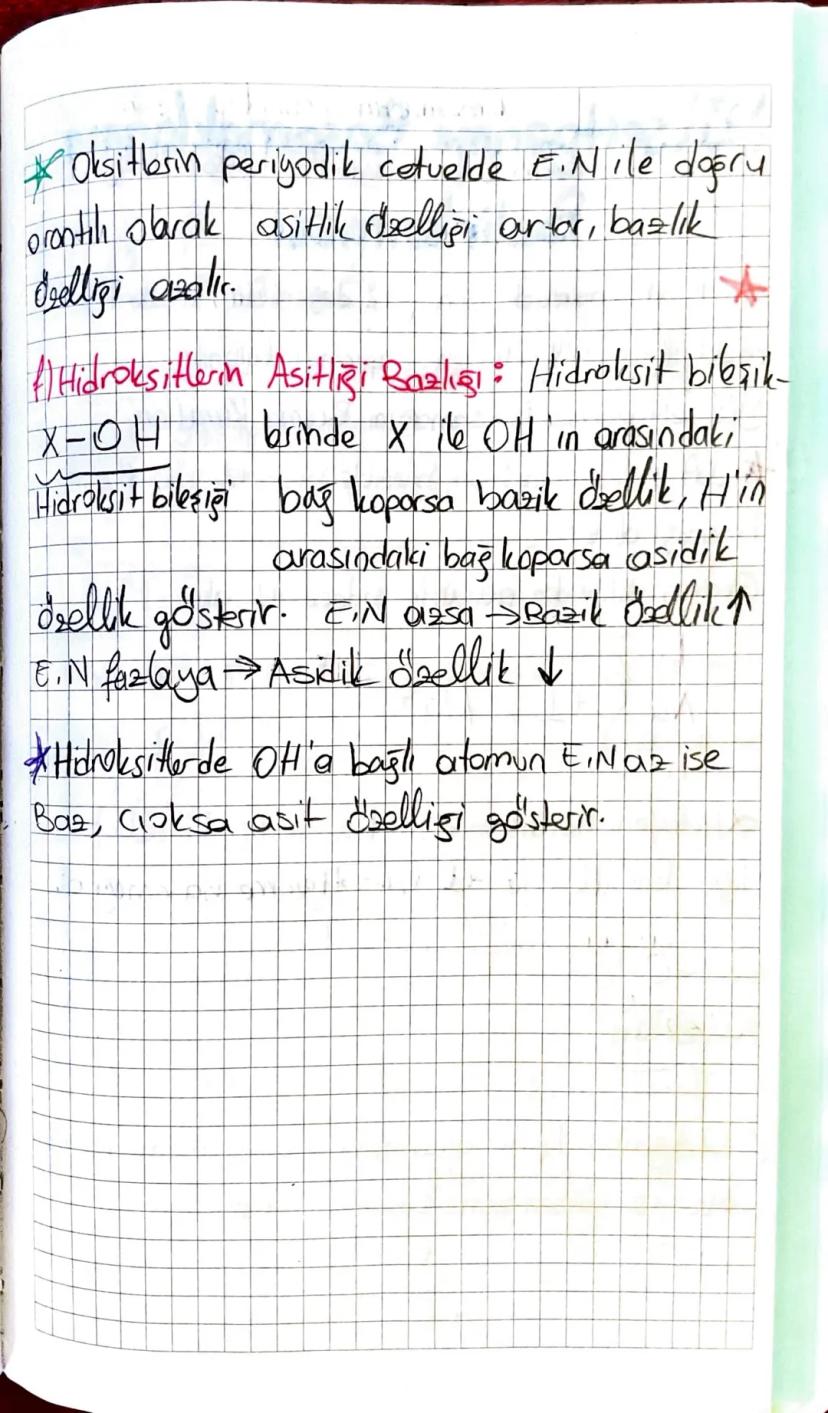 * Oksitlerin periyodik cetvelde E.N ile doğru
orantılı olarak asitlik özelliği artar, bazlık
özelliği azalır.
f) Hidroksitlerin Asitliği Bazlığı: Hidroksit bileşik-
X-OH lerinde X ile OH'ın arasındaki
Hidroksit bileşiği bağ koparsa bazik özellik, H'in
arasındaki bağ koparsa asidik
özellik gösterir. E.N azsa → Bazik özellik ↑
E.N fazlaya → Asidik özellik ↓
* Hidroksitlerde OH'a bağlı atomun E.N az ise
Baz, çoksa asit özelliği gösterir.